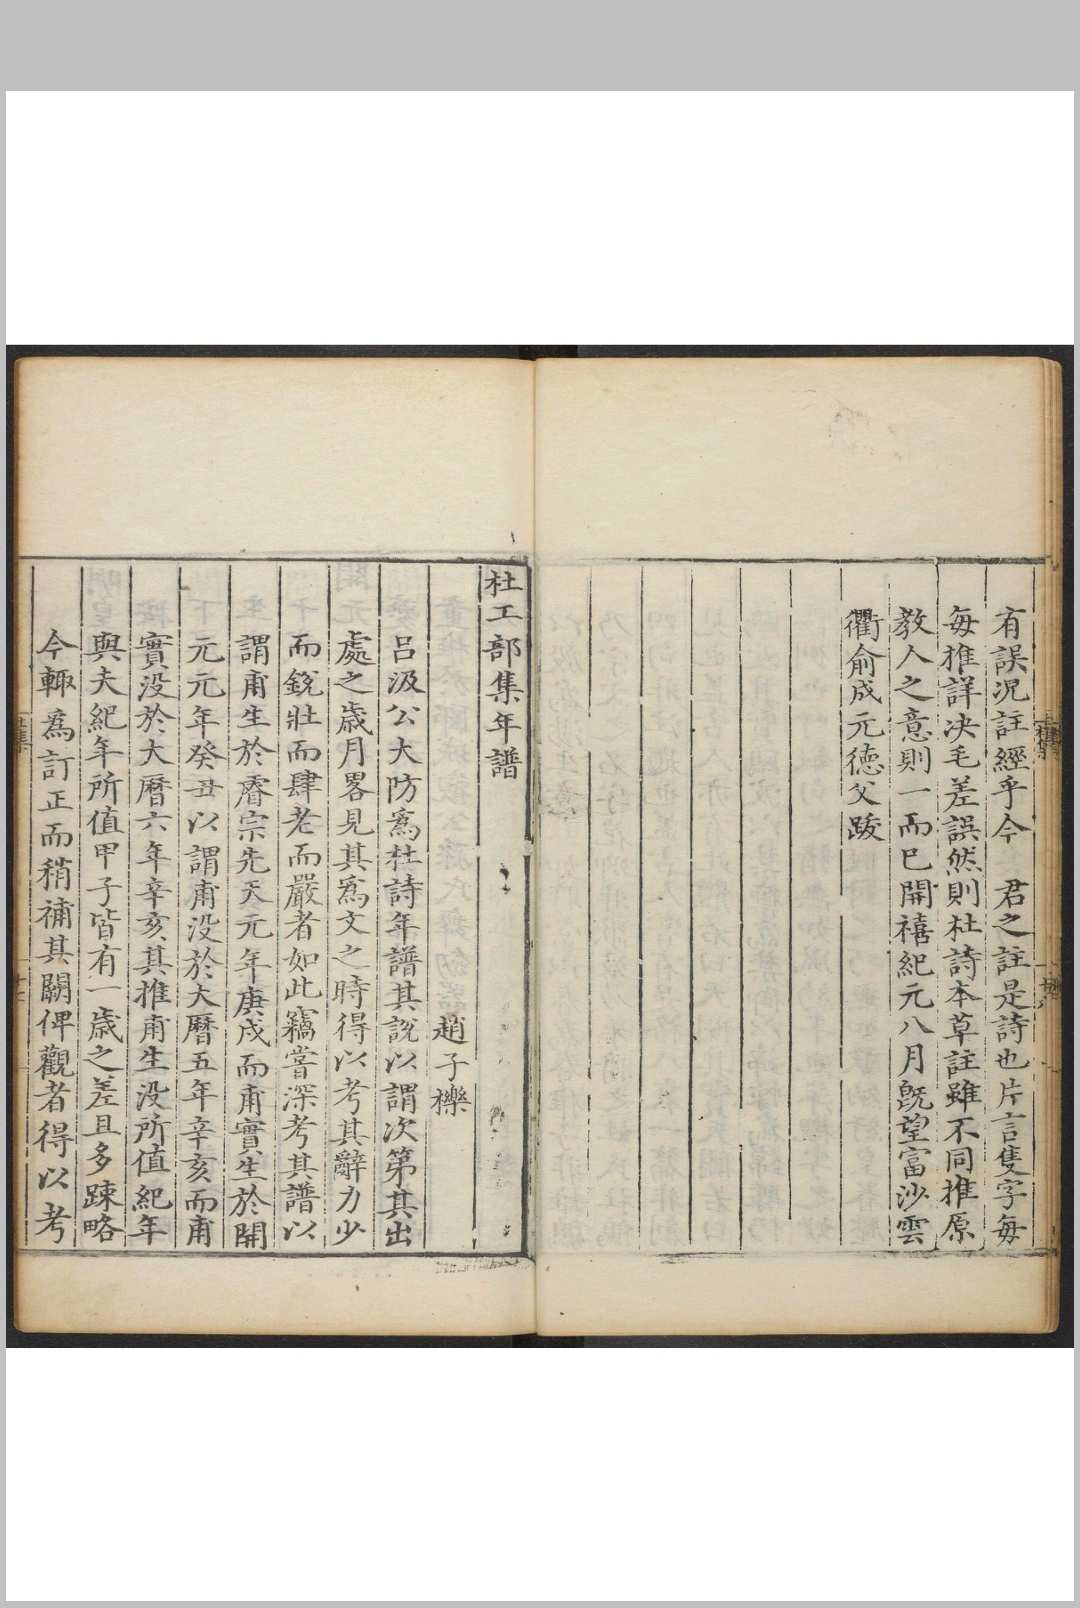 有誤況註經乎今 君之註是詩也片言隻字每
每推詳决毛差誤然則杜詩本草註雖不同推原
教人之意則一而巳開禧紀元八月旣望富沙雲
衢俞成元德父跋
杜工部集年譜
趙子櫟
呂汲公大防爲杜詩年譜其說以謂次第其出
處之歲月畧見其爲文之時得以考其辭力少
而銳壯而肆老而嚴者如此竊嘗深考其譜以
謂甫生於睿宗先天元年庚戌而甫實生於開
元元年癸丑以謂甫没於大曆五年辛亥而甫
實没於大曆六年辛亥其推甫生没所值紀年
與夫紀年所值甲子皆有一歲之差且多踈略
今輙爲訂正而稍補其闕俾觀者得以考